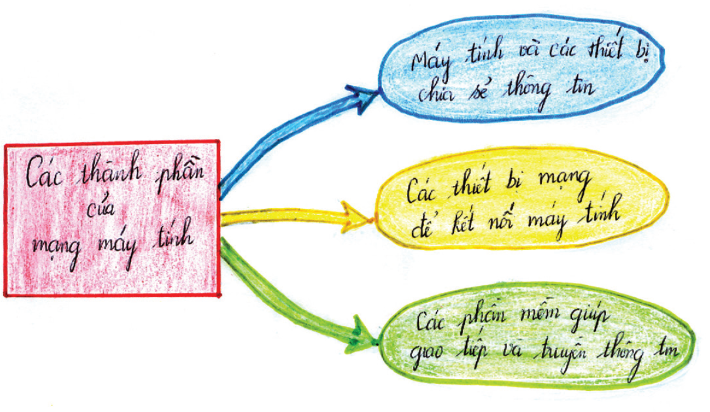 Các thành phần
của
mạng máy tính
Máy tính và các thiết bị
chia sẻ thông tin
Các thiết bị mạng
để kết nối máy tính
Các phần mềm giúp
giao tiếp và truyền thông tin